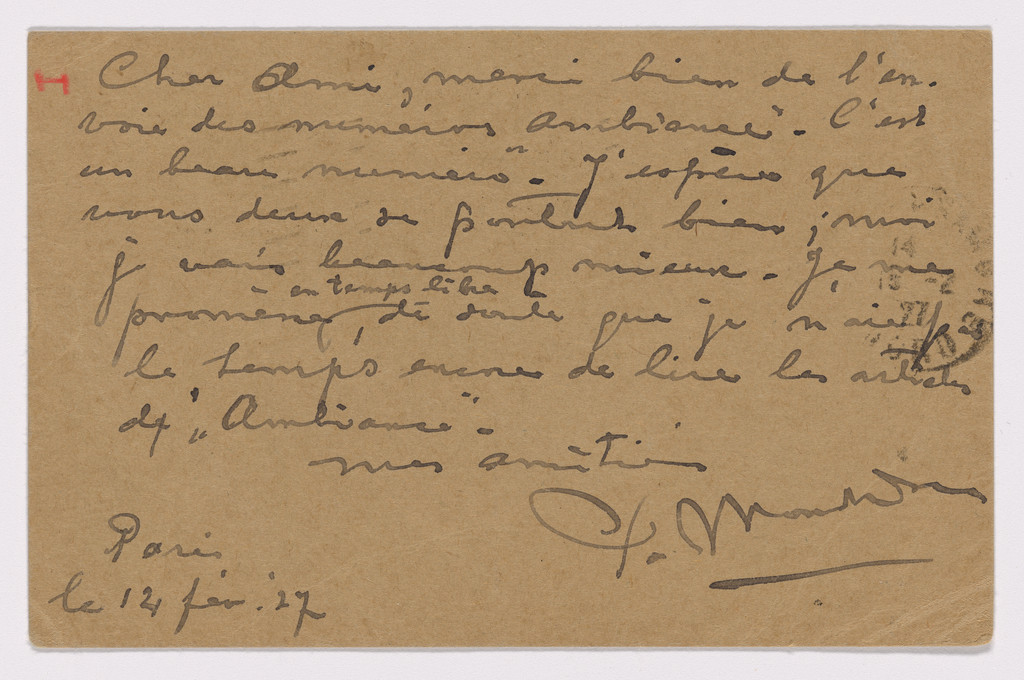 I
Cher Ami, merci bien de l'en-
voie des numéros Ambiance". C'est
un beau numéro". J'espère que
vous deux se portent bien, moi
je vais beaucoup mieux. Je me
en temps libre
promène, de sorte que je n'aie pas
le temps encore de lire les articles
de „Ambiance".
mes amitiés
P. Mondrian
Paris
le 14 fév. '27
14
27